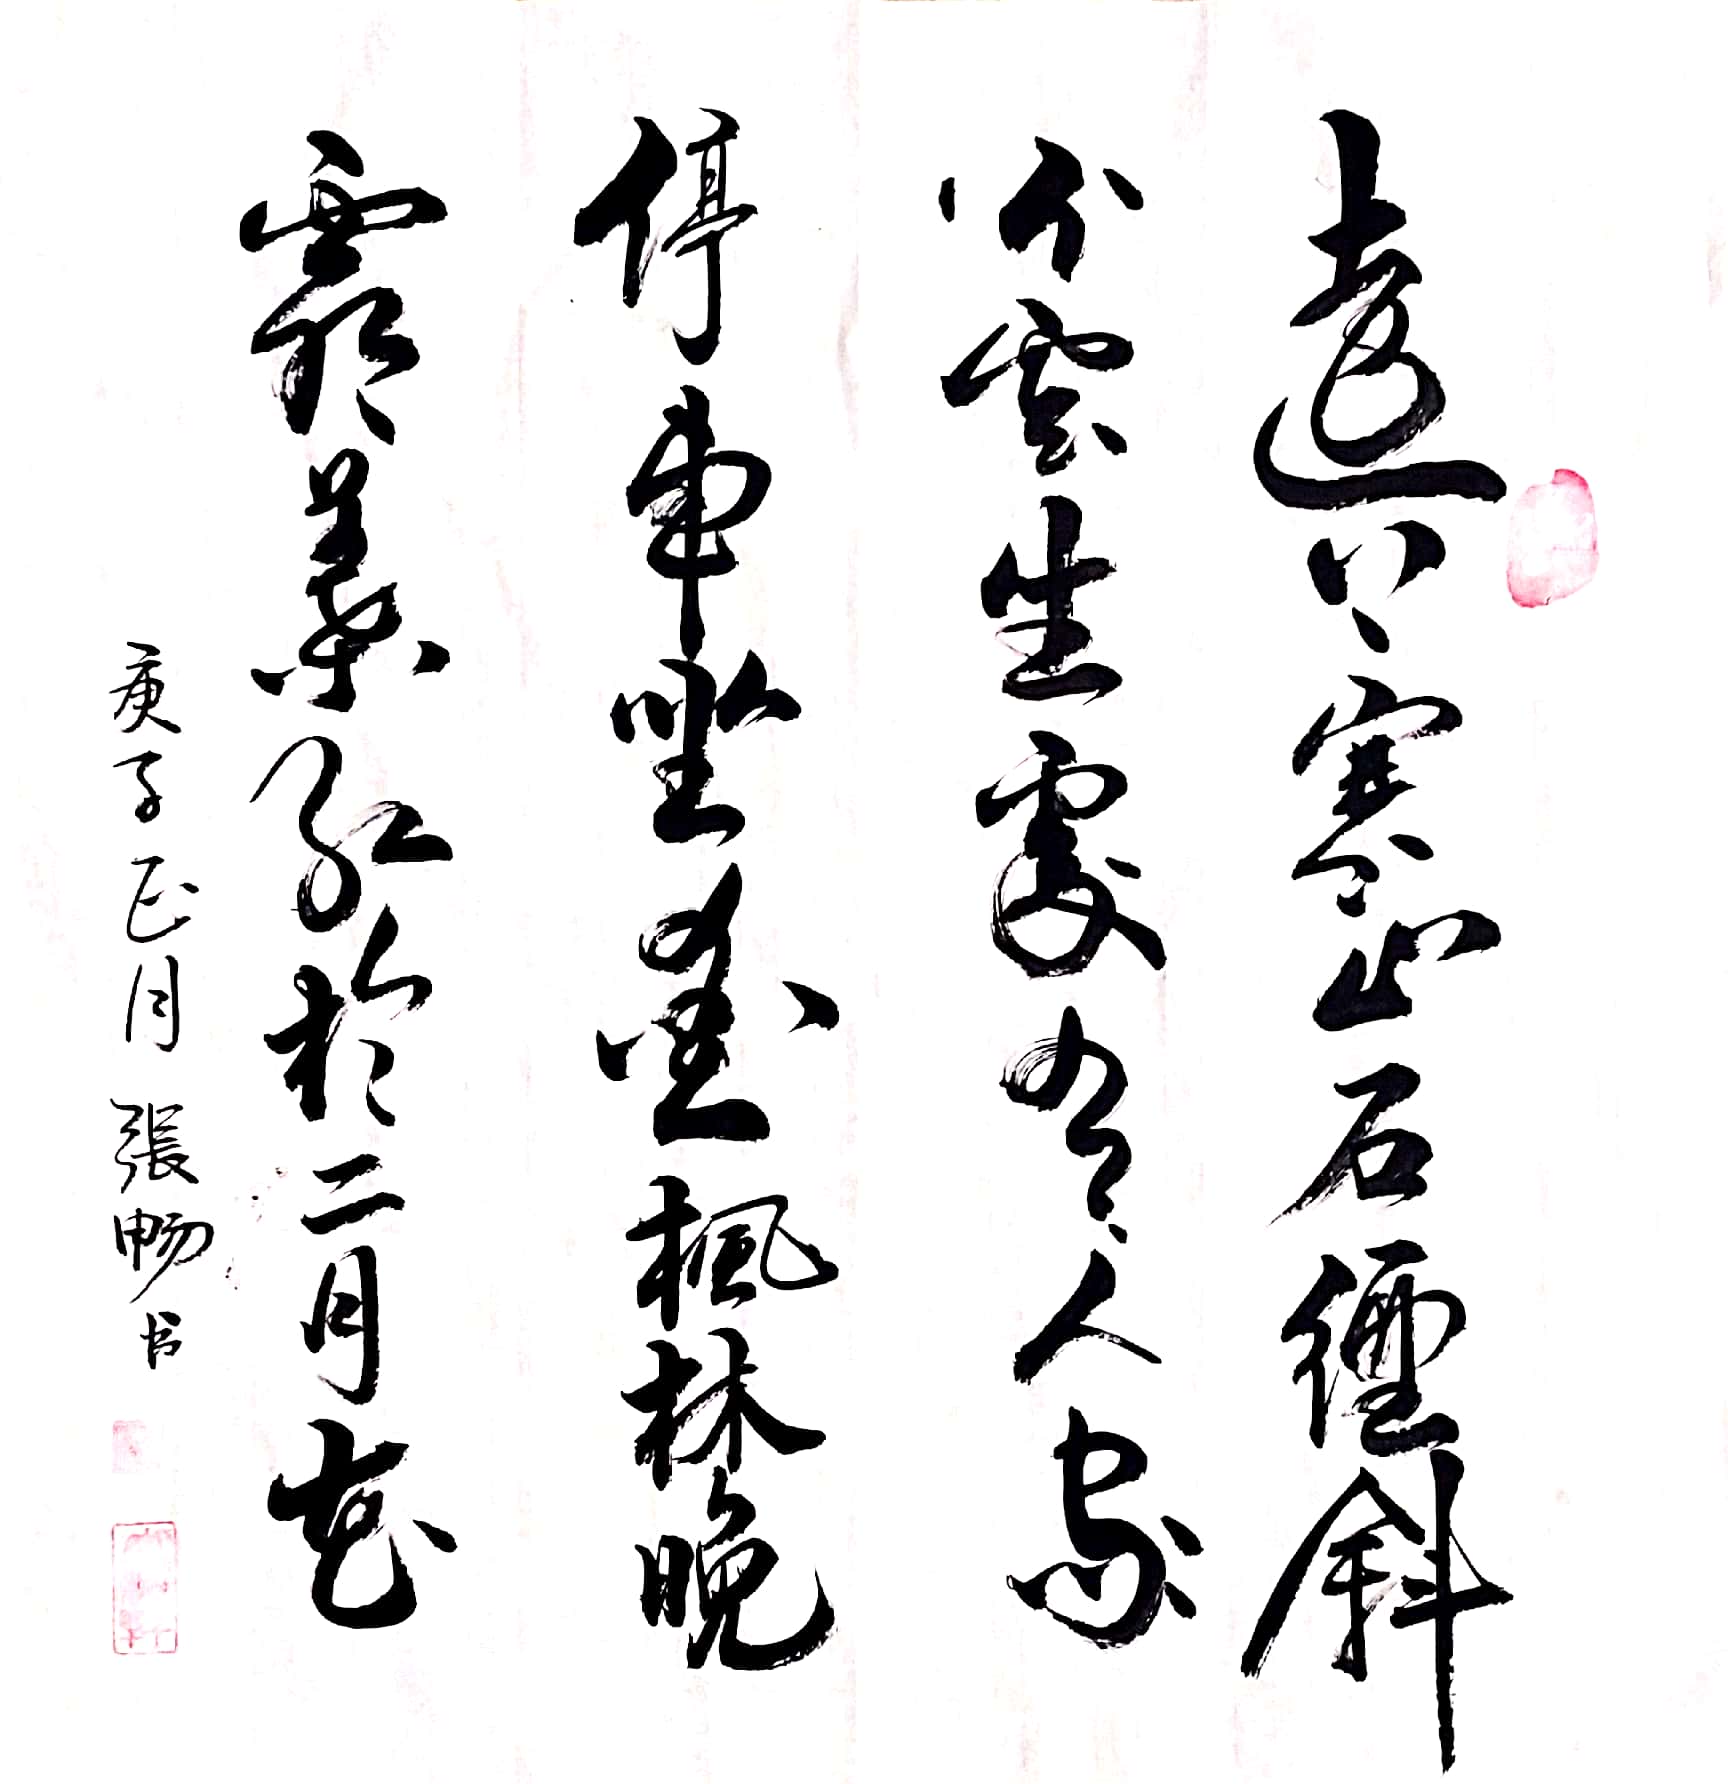 遠上寒山石徑斜
白雲生處有人家
停車坐愛楓林晚
霜葉紅於二月花
庚子正月張畅书